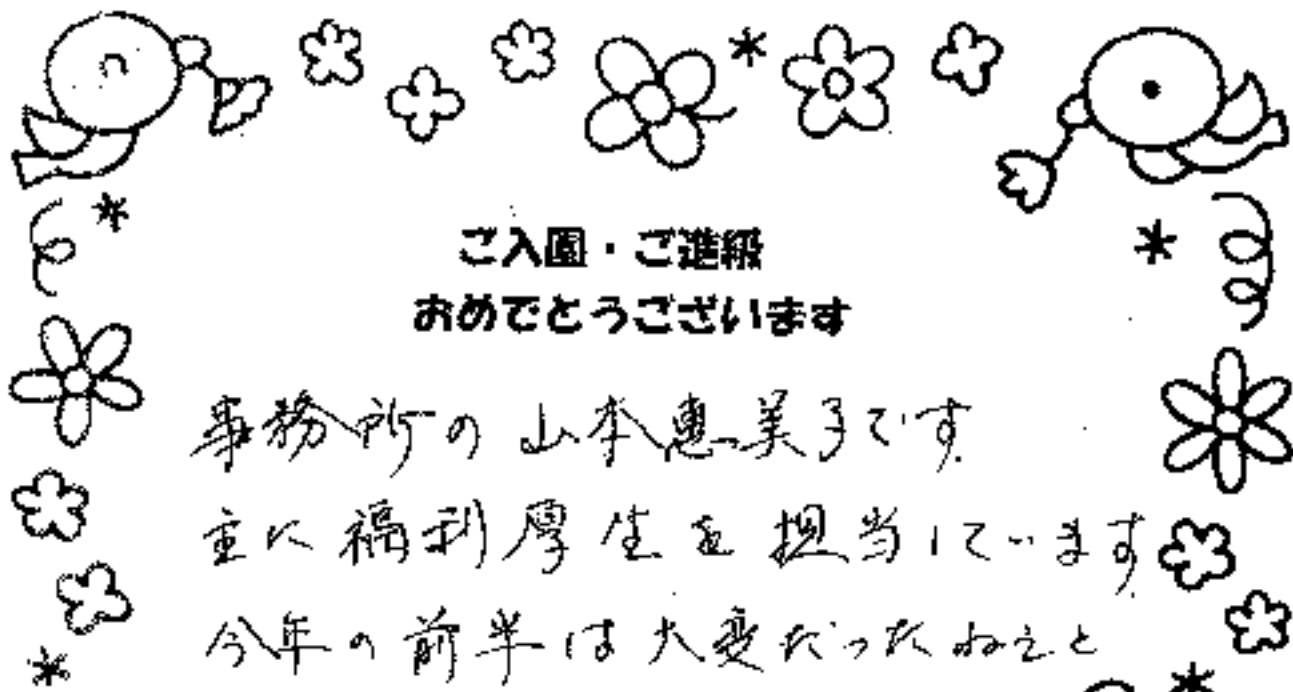 ご入園・ご進級
おめでとうございます
事務所の山本恵美子です
主に福利厚生を担当しています
今年の前半は大変だったねえと